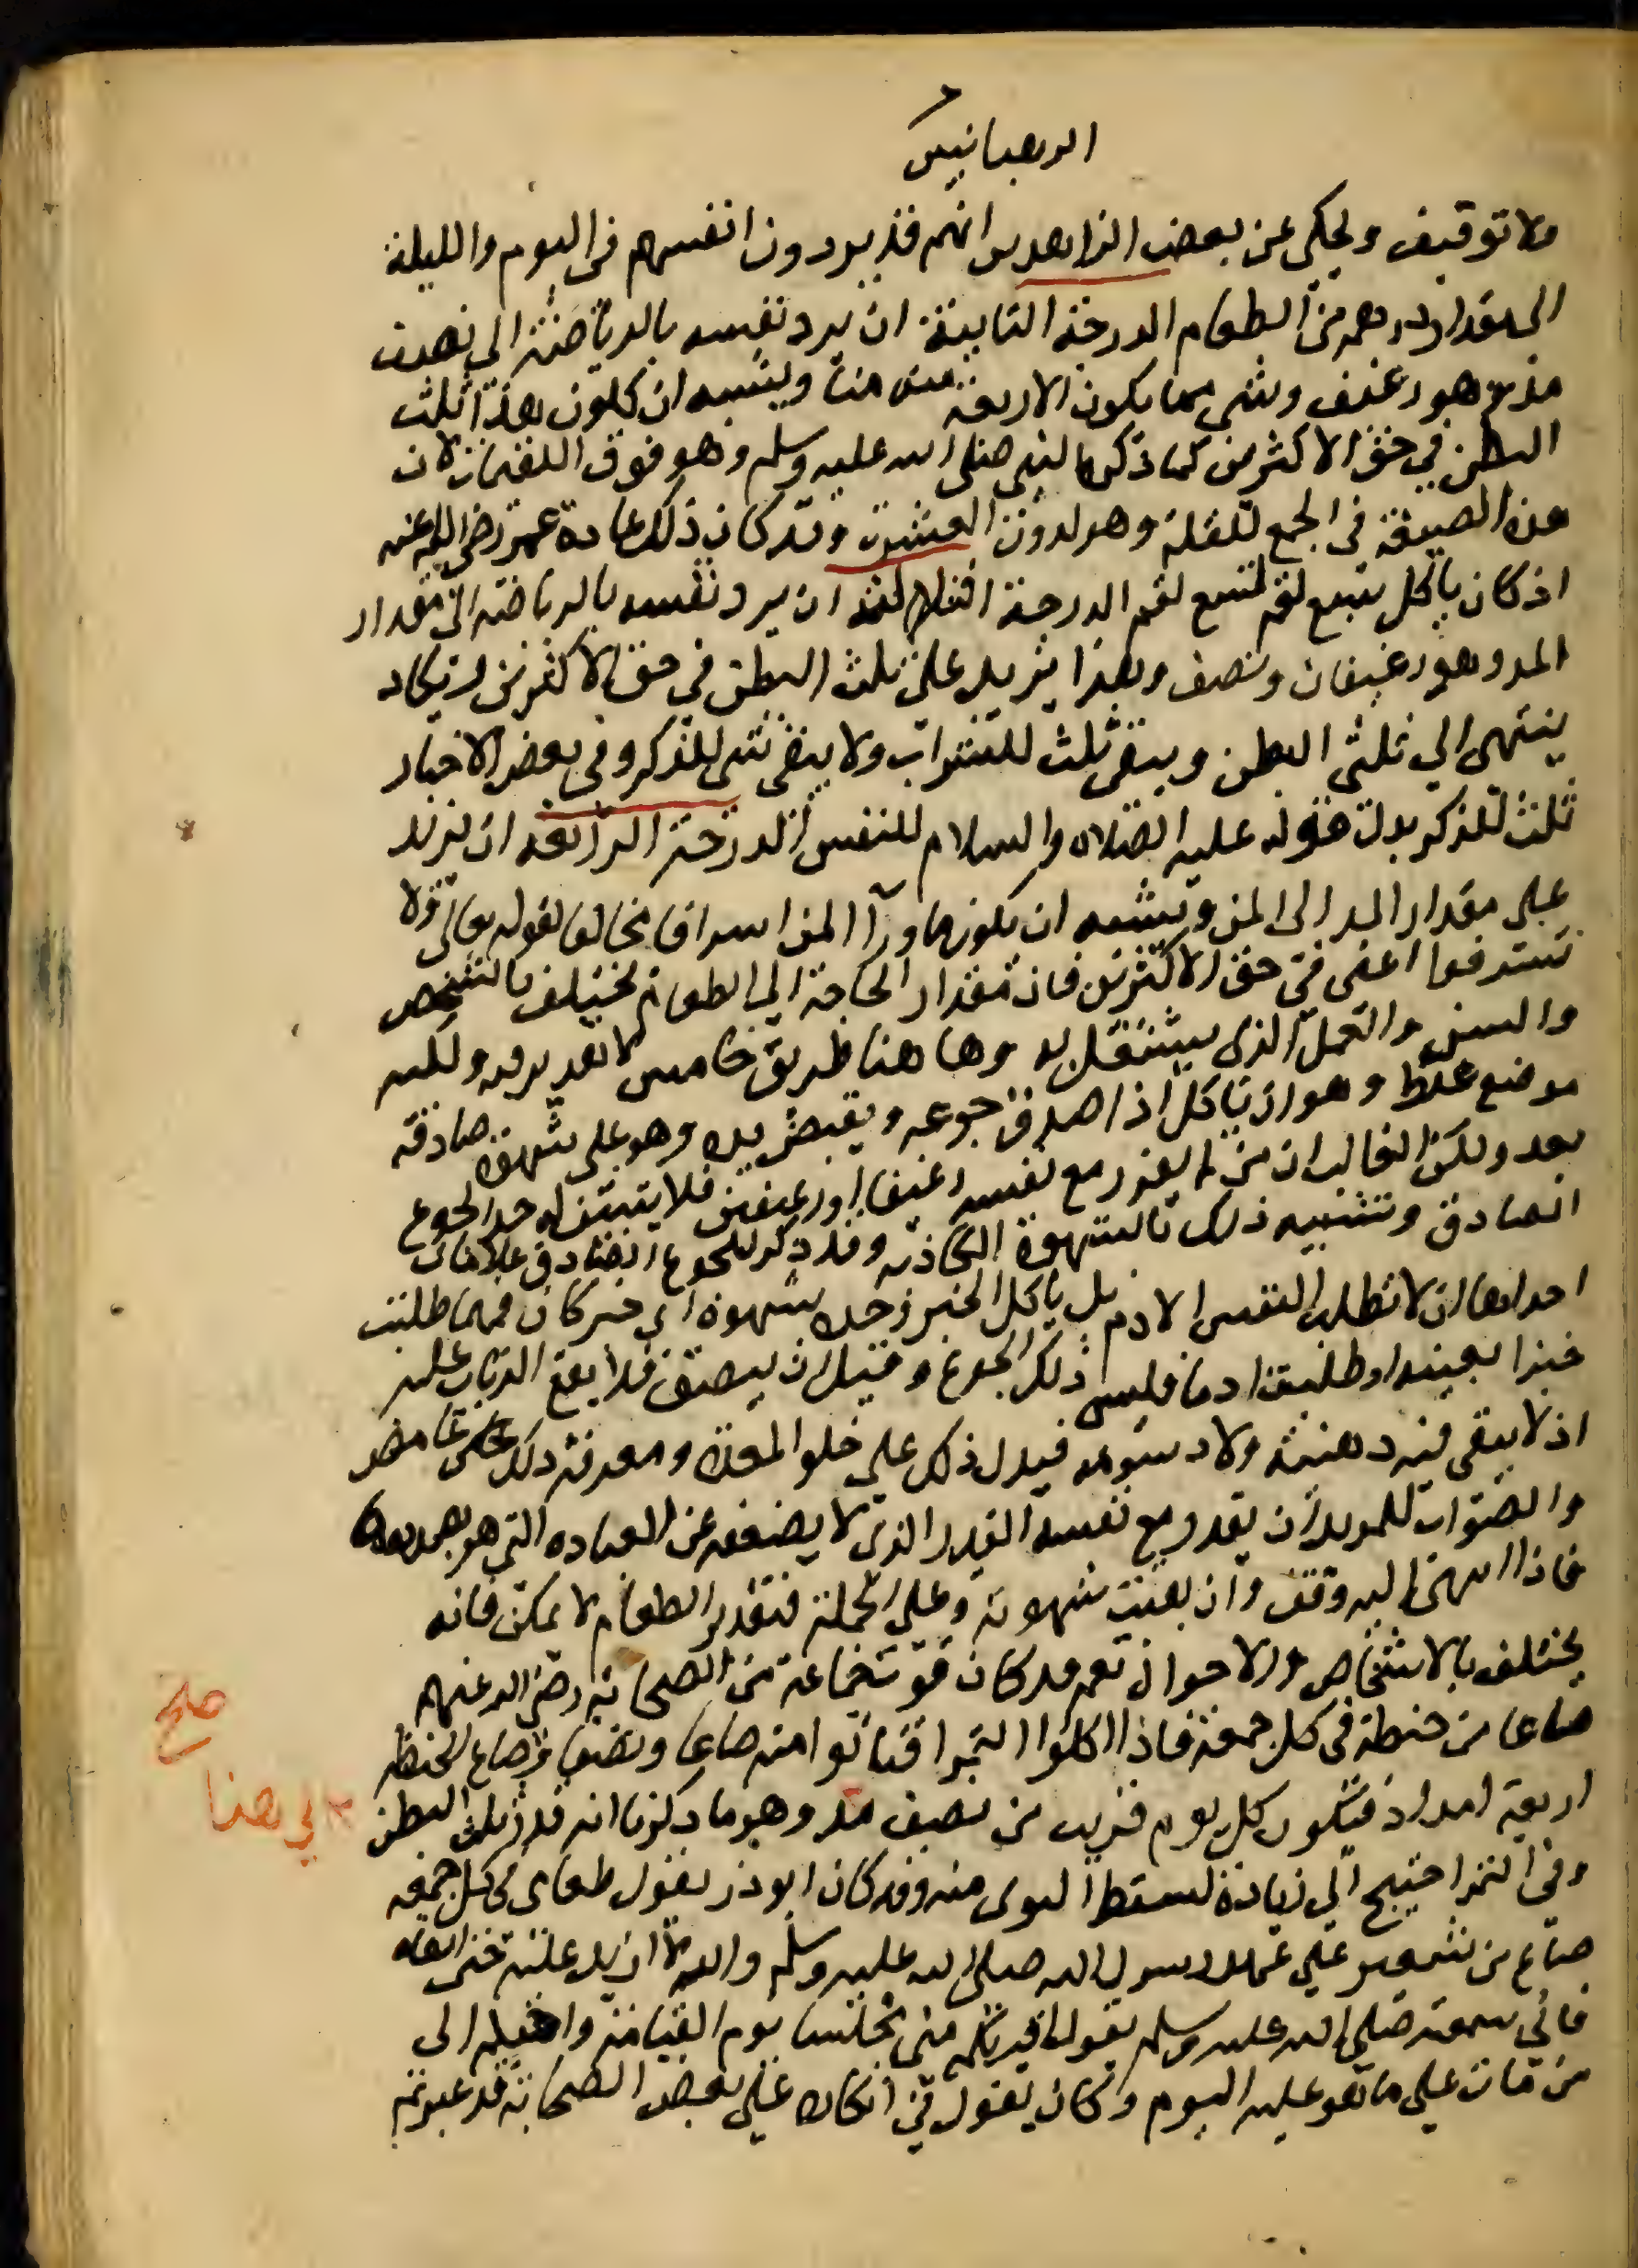 الرهبانيين
ولا توقيف ويحكى عن بعض الزاهدين انهم قد يردون انفسهم في اليوم والليلة
الى مقدار درهم من الطعام الدرجة الثانية ان يرد نفسه بالرياضة الى نصف
مد وهو رغيف وشي مما يكون الاربعة منه منا ويشبه ان يكون هذا ثلث
البطن في حق الاكثرين كما ذكره النبي صلى الله عليه وسلم وهو فوق اللقيمات لان
هذه الصيغة في الجمع للقلة وهو لدون العشرة وقد كان ذلك عادة عمر رضي الله عنه
اذ كان ياكل سبع لقم تسع لقم الدرجة الثالثة ان يرد نفسه بالرياضة الى مقدار
المد وهو رغيفان ونصف وهذا يزيد على ثلث البطن في حق الاكثرين ويكاد
ينتهي الي ثلثي البطن ويبقى ثلث للشراب ولا يبقى شي للذكر وفي بعض الاخبار
ثلث للذكر بدل قوله عليه الصلاه والسلام للنفس الدرجة الرابعة ان يزيد
على مقدار المد الى المن ويشبه ان يكون ما ورآ المن اسرافا مخالفا لقوله تعالى ولا
تسرفوا اعنى في حق الاكثرين فان مقدار الحاجة الى الطعام يختلف بالشخص
والسن والعمل الذي يشتغل به وها هنا طريق خامس لا تقدير فيه ولكنه
موضع غلط وهو ان ياكل اذا صدق جوعه ويقبض يده وهو على شهوة صادقة
بعد ولكن الغالب ان من لم يقدر مع نفسه رغيفا او رغيفين فلا يتبين له حد الجوع
الصادق وتشبيه ذلك بالشهوة الكاذبه وقد ذكر للجوع الصادق علامات
احداها ان لا تطلب النفس الادم بل ياكل الخبز وحده بشهوة اي خبز كان فمهما طلبت
خبزا بعينه او طلبت ادما فليس ذلك الجوع وقيل ان يبصق فلا يقع الذباب عليه
اذ لا يبقى فيه دهنية ولا دسومه فيدل ذلك على خلو المعدة ومعرفة ذلك غامض
والصواب للمريد ان يقدر مع نفسه القدر الذي لا يضعفه عن العباده التي هو بصددها
فاذا انتهى اليه وقف وان بقيت شهوته وعلى الجملة فتقدير الطعام لا يمكن فانه
يختلف بالاشخاص والاحوال نعم قد كان قوت جماعة من الصحابة رضي الله عنهم
صاعا من حنطة في كل جمعة فاذا اكلوا التمر اقتاتوا منه صاعا ونصفا وصاع الحنطه
اربعة امداد فيكون كل يوم قريب من نصف مد وهو ما ذكرنا انه قدر ثلث البطن
وفي التمر احتيج الى زيادة لسقط النوى منه وقد كان ابو ذر يقول طعامي في كل جمعه
صاع من شعير على عهد رسول الله صلى الله عليه وسلم والله لا ازيد عليه حتى القاه
فاني سمعته صلى الله عليه وسلم يقول اقربكم مني مجلسا يوم القيامة واحبكم الى
من مات على ما هو عليه اليوم وكان يقول في انكاره على بعض الصحابة قد غيرتم
صلح
الي هنا